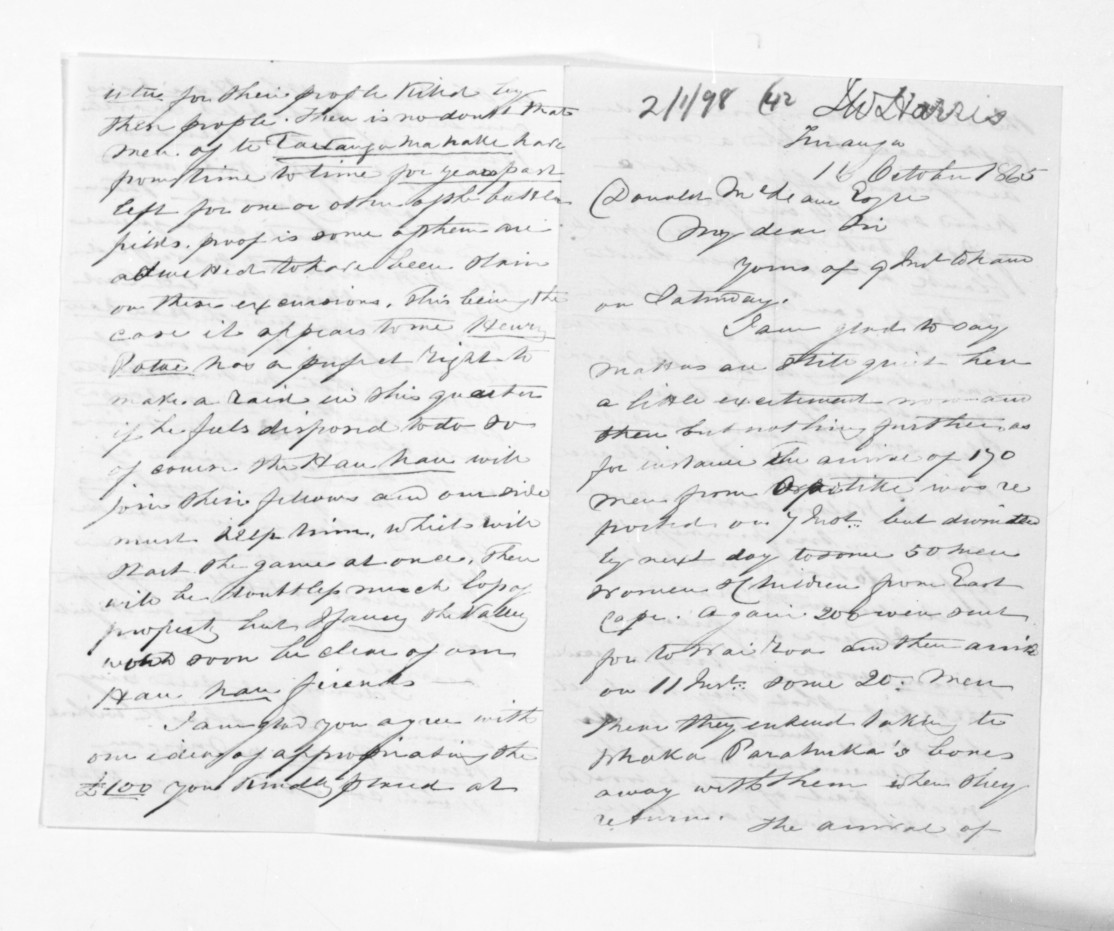 utu for their people killed by
these people. There is no doubt that
men of te Taitanga Mahaki have
from time to time for years past
left for one or other of the battle
fields. proof is some of them are
admitted to have been slain
on these excursions. This being the
case it appears to me Henry
Potae has a perfect right to
make a raid in this quarter
if he feels disposed to do so
of course the Hau hau will
join their fellows and our side
must help him, which will
start the game at once. There
will be doubtless much loss of
property but I fancy the Valley
would soon be clear of our
Hau hau friends —
I am glad you agree with
our idea of appropriating the
£100 you kindly placed at
2/1/98 42 JW Harris
Turanga
16 October 1865
Donald McLean Esqre
My dear Sir
Yours of 9 Inst to hand
on Saturday.
I am glad to say
matters are still quiet here
a little excitement now and
then but nothing further, as
for instance the arrival of 170
men from Opotiki was re
ported on 7 Inst. but dwindled
by next day to some 50 men
women & Children from East
Cape. Again 200 were sent
for to Wairoa and there arrive
on 11 Inst. some 20. men
these they intend taking te
Whaka Paratuka's bones
away with them when they
return. The arrival of